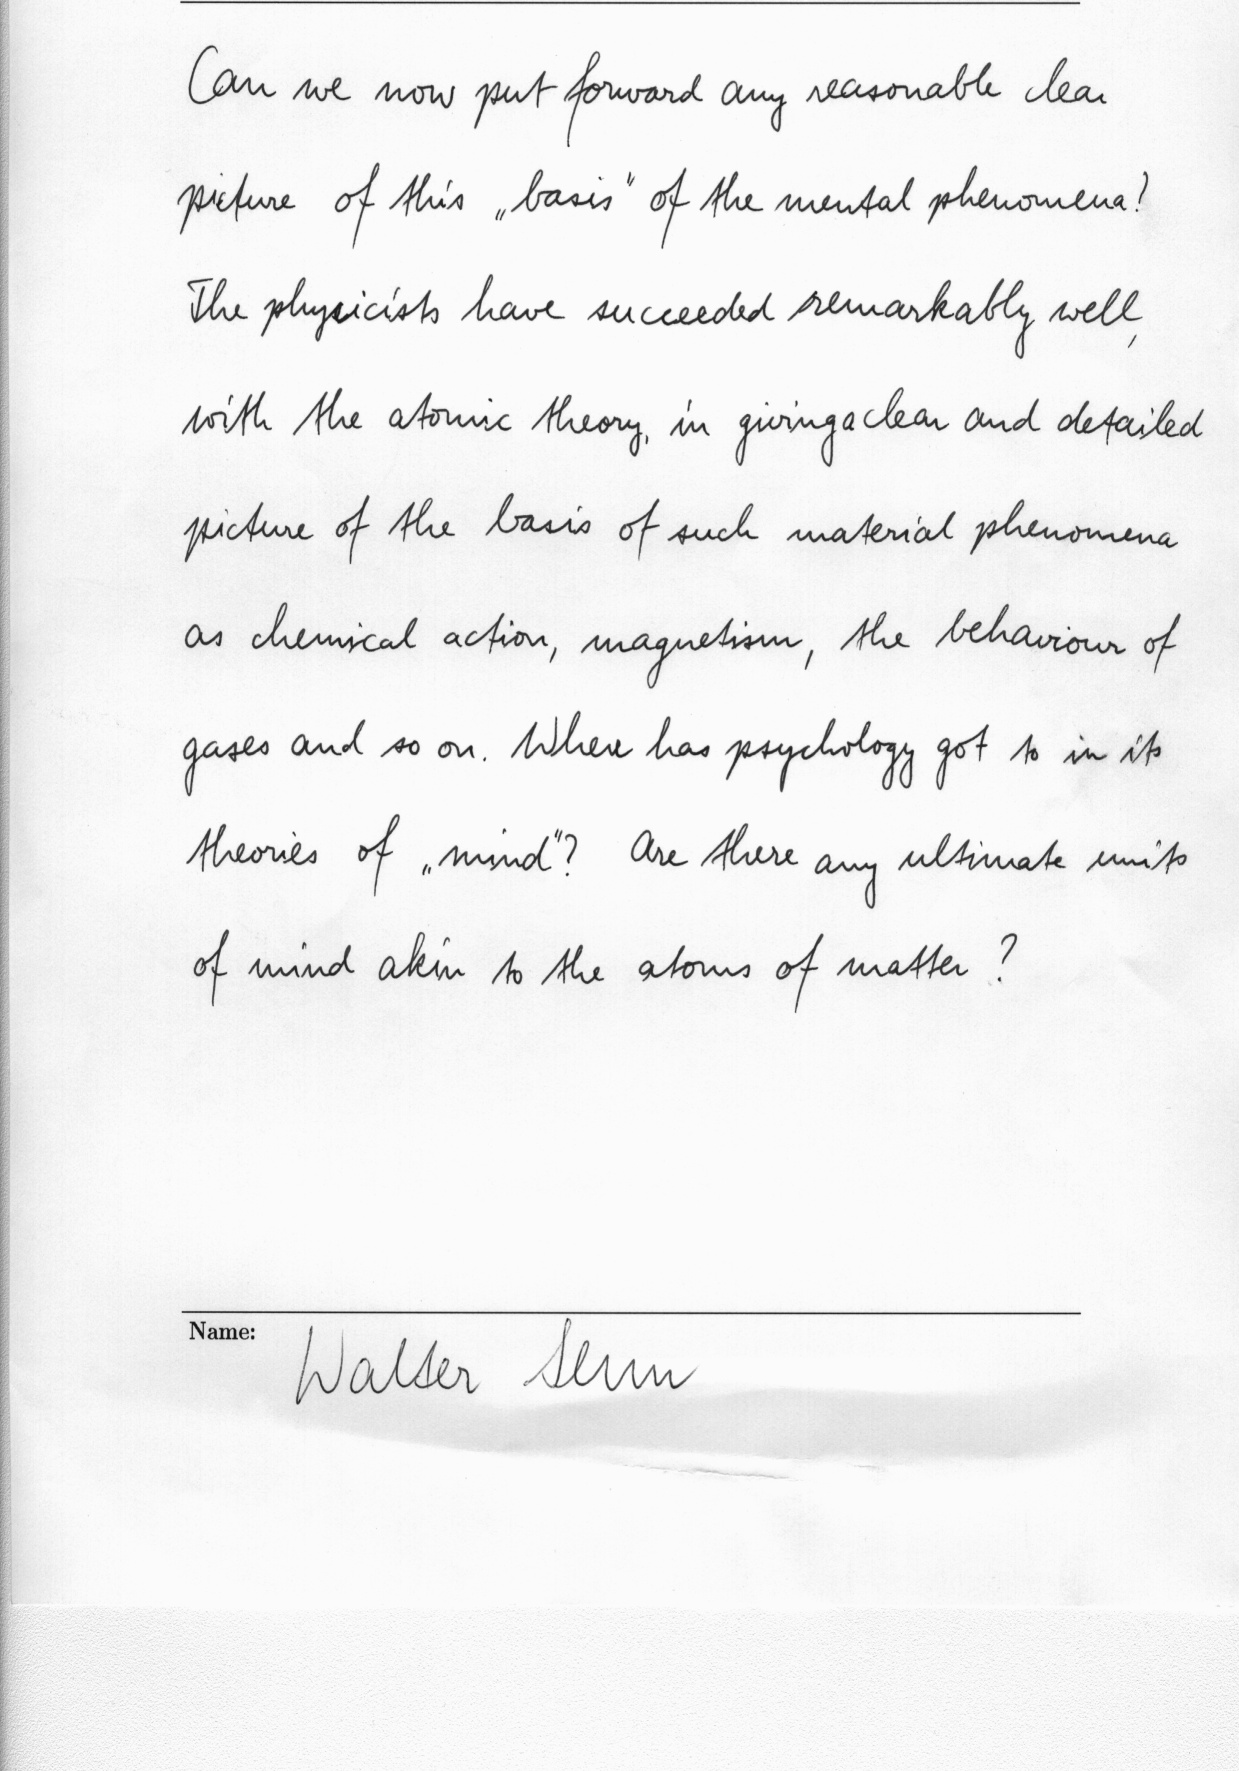 Can we now put forward any reasonable clear
picture of this „basis" of the mental phenomena?
The physicists have succeeded remarkably well,
with the atomic theory, in giving a clear and detailed
picture of the basis of such material phenomena
as chemical action, magnetism, the behaviour of
gases and so on. Where has psychology got to in its
theories of „mind"? Are there any ultimate units
of mind akin to the atoms of matter ?
Name:
Walter Senn